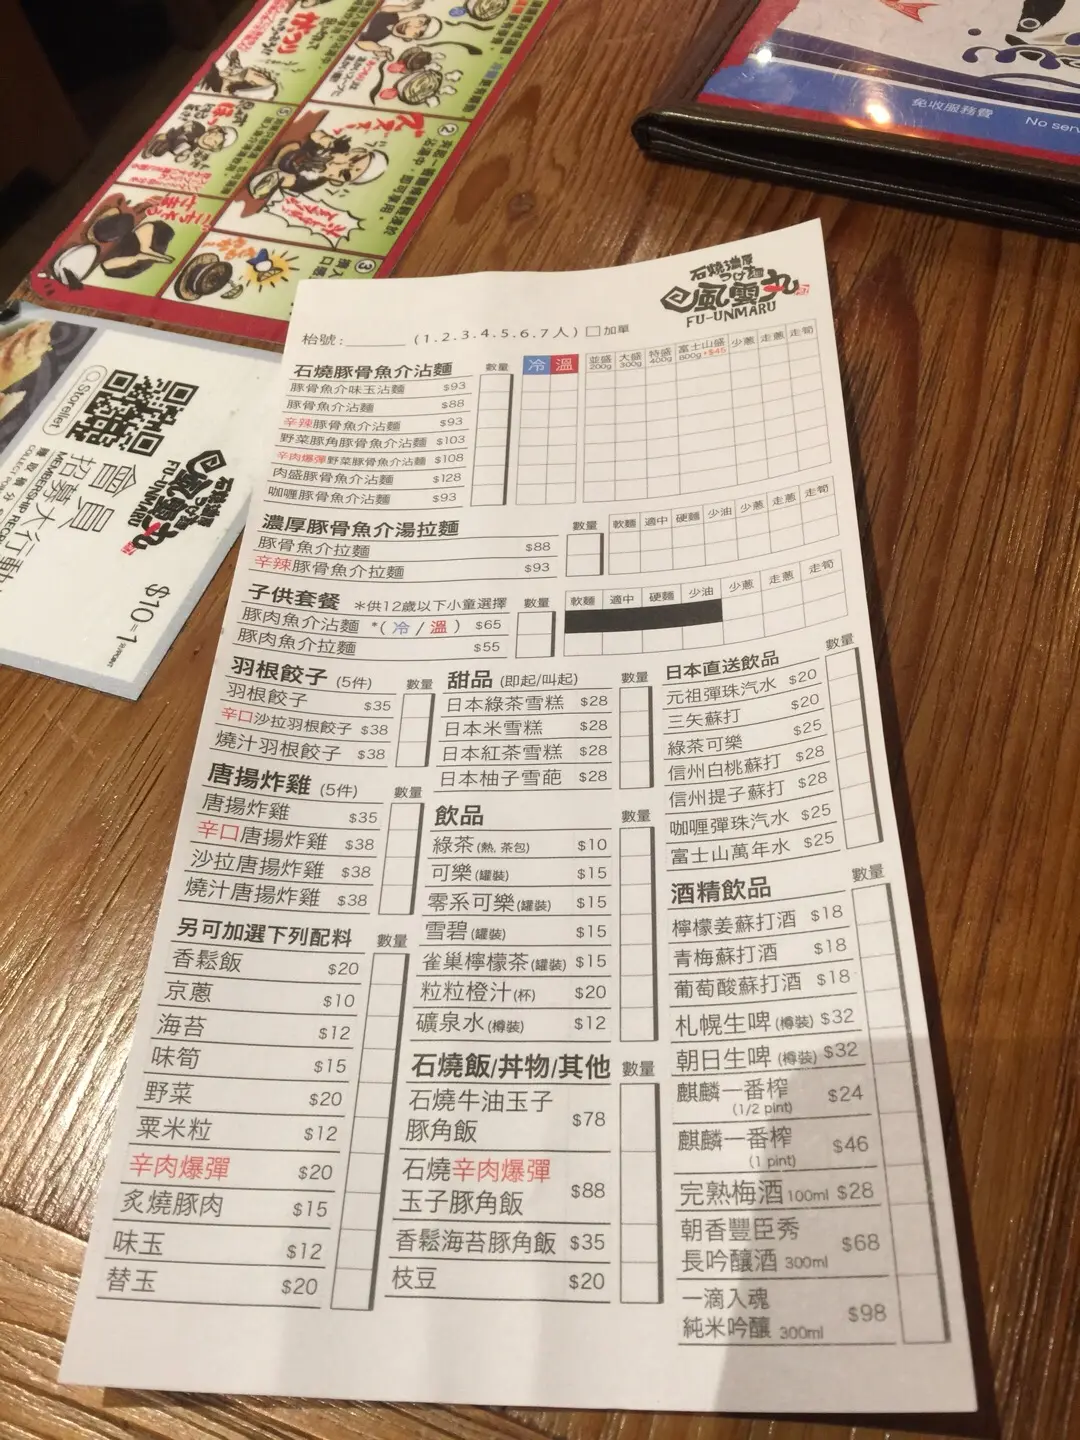 免收服務費
No serv
石燒濃厚
つけ麵
風雲丸
FU-UNMARU
枱號:______ (1.2.3.4.5.6.7人) 加單
石燒豚骨魚介沾麵 數量 冷 溫 並盛 200g 大盛 300g 特盛 400g 富士山盛 800g +$45 少蔥 走蔥 走筍
豚骨魚介味玉沾麵 $93
豚骨魚介沾麵 $88
辛辣豚骨魚介沾麵 $93
野菜豚角豚骨魚介沾麵 $103
辛肉爆彈野菜豚骨魚介沾麵 $108
肉盛豚骨魚介沾麵 $128
咖喱豚骨魚介沾麵 $93
濃厚豚骨魚介湯拉麵 數量 軟麵 適中 硬麵 少油 少蔥 走蔥 走筍
豚骨魚介拉麵 $88
辛辣豚骨魚介拉麵 $93
子供套餐 *供12歲以下小童選擇 數量 軟麵 適中 硬麵 少油 少蔥 走蔥 走筍
豚肉魚介沾麵 *(冷/溫) $65
豚肉魚介拉麵 $55
羽根餃子 (5件) 數量
羽根餃子 $35
辛口沙拉羽根餃子 $38
燒汁羽根餃子 $38
唐揚炸雞 (5件) 數量
唐揚炸雞 $35
辛口唐揚炸雞 $38
沙拉唐揚炸雞 $38
燒汁唐揚炸雞 $38
另可加選下列配料 數量
香鬆飯 $20
京蔥 $10
海苔 $12
味筍 $15
野菜 $20
粟米粒 $12
辛肉爆彈 $20
炙燒豚肉 $15
味玉 $12
替玉 $20
甜品 (即起/叫起) 數量
日本綠茶雪糕 $28
日本米雪糕 $28
日本紅茶雪糕 $28
日本柚子雪葩 $28
飲品 數量
綠茶(熱, 茶包) $10
可樂(罐裝) $15
零系可樂(罐裝) $15
雪碧(罐裝) $15
雀巢檸檬茶(罐裝) $15
粒粒橙汁(杯) $20
礦泉水(樽裝) $12
石燒飯/丼物/其他 數量
石燒牛油玉子
豚角飯 $78
石燒辛肉爆彈
玉子豚角飯 $88
香鬆海苔豚角飯 $35
枝豆 $20
日本直送飲品 數量
元祖彈珠汽水 $20
三矢蘇打 $20
綠茶可樂 $25
信州白桃蘇打 $28
信州提子蘇打 $28
咖喱彈珠汽水 $25
富士山萬年水 $25
酒精飲品 數量
檸檬姜蘇打酒 $18
青梅蘇打酒 $18
葡萄酸蘇打酒 $18
札幌生啤(樽裝) $32
朝日生啤(樽裝) $32
麒麟一番榨
(1/2 pint) $24
麒麟一番榨
(1 pint) $46
完熟梅酒 100ml $28
朝香豐臣秀
長吟釀酒 300ml $68
一滴入魂
純米吟釀 300ml $98
Storellet
石燒濃厚
つけ麵
風雲丸
FU-UNMARU
會員
招募大行動
$10=1
②
③
⑤